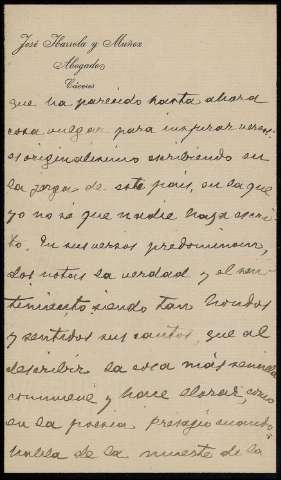 José Ibarrola y Muñoz
Abogado
Cáceres
que ha parecido hasta ahora
cosa vulgar para inspirar versos
es originalisimo escribiendo en
la jerga de este pais, en la que
yo no sé que nadie haya escri-
to. En sus versos predominan,
dos notas la verdad y el sen-
timiento, siendo tan hondos
y sentidos sus cantos, que al
describir la cosa más sencilla
conmueve y hace llorar, como
en la poesia Presagio cuando
habla de la muerte de la